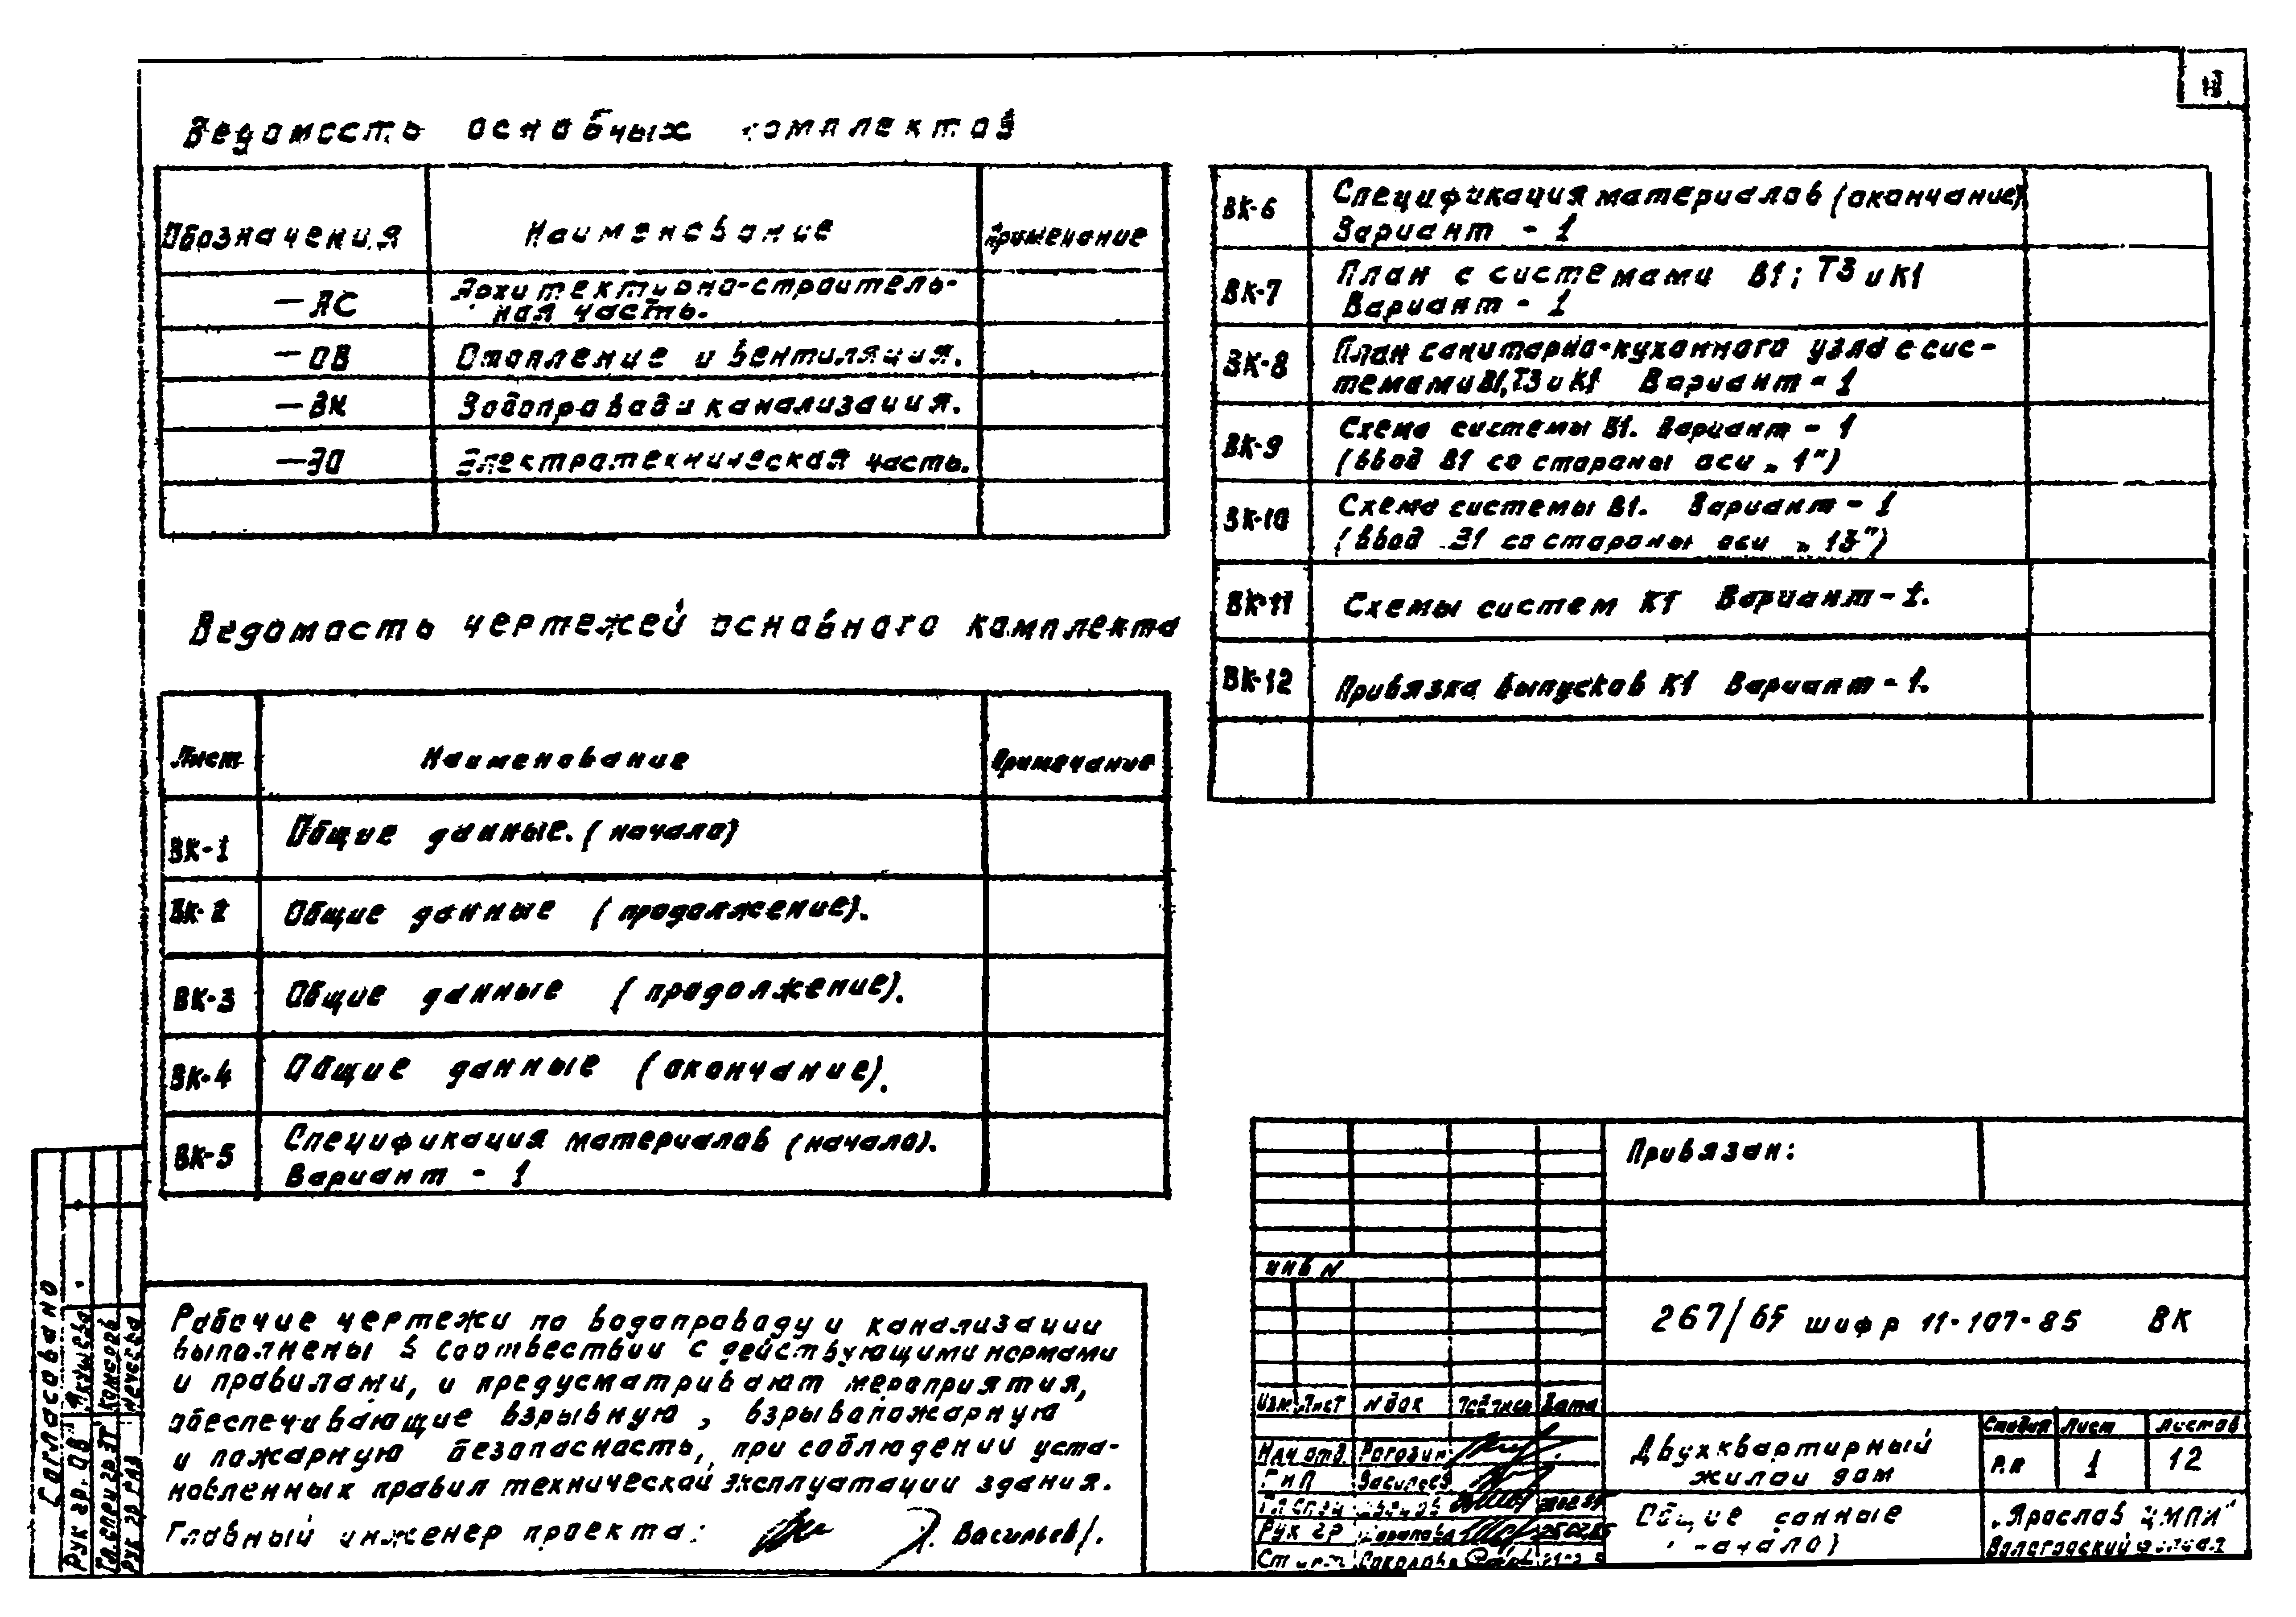 Ведомость основных комплектов
Обозначения Наименование Примечание
—АС Архитектурно-строитель-
ная часть.
—ОВ Отопление и вентиляция.
—ВК Водопровод и канализация.
—ЭО Электротехническая часть.
Ведомость чертежей основного комплекта
Лист Наименование Примечание
ВК-1 Общие данные. (начало)
ВК-2 Общие данные (продолжение).
ВК-3 Общие данные (продолжение).
ВК-4 Общие данные (окончание).
ВК-5 Спецификация материалов (начало).
Вариант - 1
ВК-6 Спецификация материалов (окончание)
Вариант - 1
ВК-7 План с системами В1; Т3 и К1
Вариант - 1
ВК-8 План санитарно-кухонного узла с сис-
темами В1, Т3 и К1 Вариант - 1
ВК-9 Схема системы В1. Вариант - 1
(ввод В1 со стороны оси „1")
ВК-10 Схема системы В1. Вариант - 1
(ввод В1 со стороны оси „13")
ВК-11 Схемы систем К1 Вариант - 1.
ВК-12 Привязка выпусков К1 Вариант - 1.
Рабочие чертежи по водопроводу и канализации
выполнены в соответствии с действующими нормами
и правилами, и предусматривают мероприятия,
обеспечивающие взрывную, взрывопожарную
и пожарную безопасность, при соблюдении уста-
новленных правил технической эксплуатации здания.
Главный инженер проекта: Васильев/.
Согласовано
Рук гр. ОВ
Гл.спец гр ЭТ
Рук гр
Привязан:
инв N
267/65 шифр 11-107-85 ВК
Изм Лист N док Подпись Дата
Нач отд. Рогозин
ГИП Васильев
Гл спец
Рук гр
Двухквартирный
жилой дом
Стадия Лист Листов
Р.П 1 12
Общие данные
(начало)
„Ярослав ЦМПИ"
Вологодский филиал